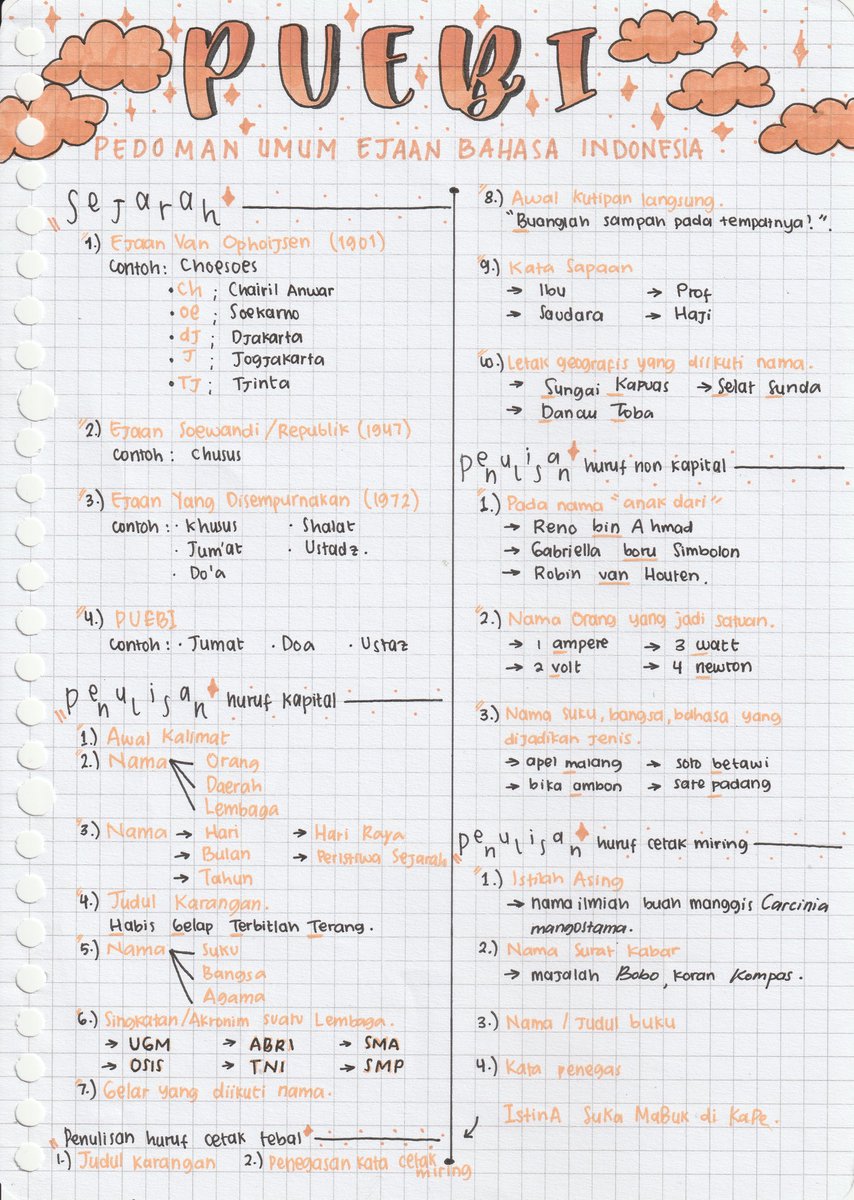 PUEBI
PEDOMAN UMUM EJAAN BAHASA INDONESIA.
Sejarah
1.) Ejaan Van Ophoijsen (1901)
Contoh: Choesoes
• Ch ; Chairil Anwar
• oe ; Soekarno
• dj ; Djakarta
• J ; Jogjakarta
• TJ ; Tjinta
2.) Ejaan Soewandi/Republik (1947)
Contoh : Chusus
3.) Ejaan Yang Disempurnakan (1972)
Contoh : · Khusus · Shalat
· Jum'at · Ustadz.
· Do'a
4.) PUEBI
Contoh: · Jumat · Doa · Ustaz
Penulisan huruf kapital
1.) Awal Kalimat
2.) Nama Orang
Daerah
Lembaga
3.) Nama → Hari → Hari Raya
→ Bulan → Peristiwa Sejarah
→ Tahun
4.) Judul Karangan.
Habis Gelap Terbitlah Terang.
5.) Nama Suku
Bangsa
Agama
6.) Singkatan/Akronim suatu Lembaga.
→ UGM → ABRI → SMA
→ OSIS → TNI → SMP
7.) Gelar yang diikuti nama.
Penulisan huruf cetak tebal
1.) Judul Karangan 2.) Penegasan kata cetak miring
8.) Awal kutipan langsung.
"Buanglah sampah pada tempatnya!".
9.) Kata Sapaan
→ Ibu → Prof
→ Saudara → Haji
10.) Letak geografis yang diikuti nama.
→ Sungai Kapuas → Selat Sunda
→ Danau Toba
Penulisan huruf non kapital
1.) Pada nama "anak dari"
→ Reno bin Ahmad
→ Gabriella boru Simbolon
→ Robin van Houten.
2.) Nama Orang yang jadi satuan.
→ 1 ampere → 3 watt
→ 2 volt → 4 newton
3.) Nama suku, bangsa, bahasa yang
dijadikan jenis.
→ apel malang → soto betawi
→ bika ambon → sate padang
Penulisan huruf cetak miring
1.) Istilah Asing
→ nama ilmiah buah manggis Carcinia
mangostama.
2.) Nama Surat Kabar
→ majalah Bobo, koran Kompas.
3.) Nama / Judul buku
4.) Kata penegas
IstinA Suka MaBuk di KaPe.